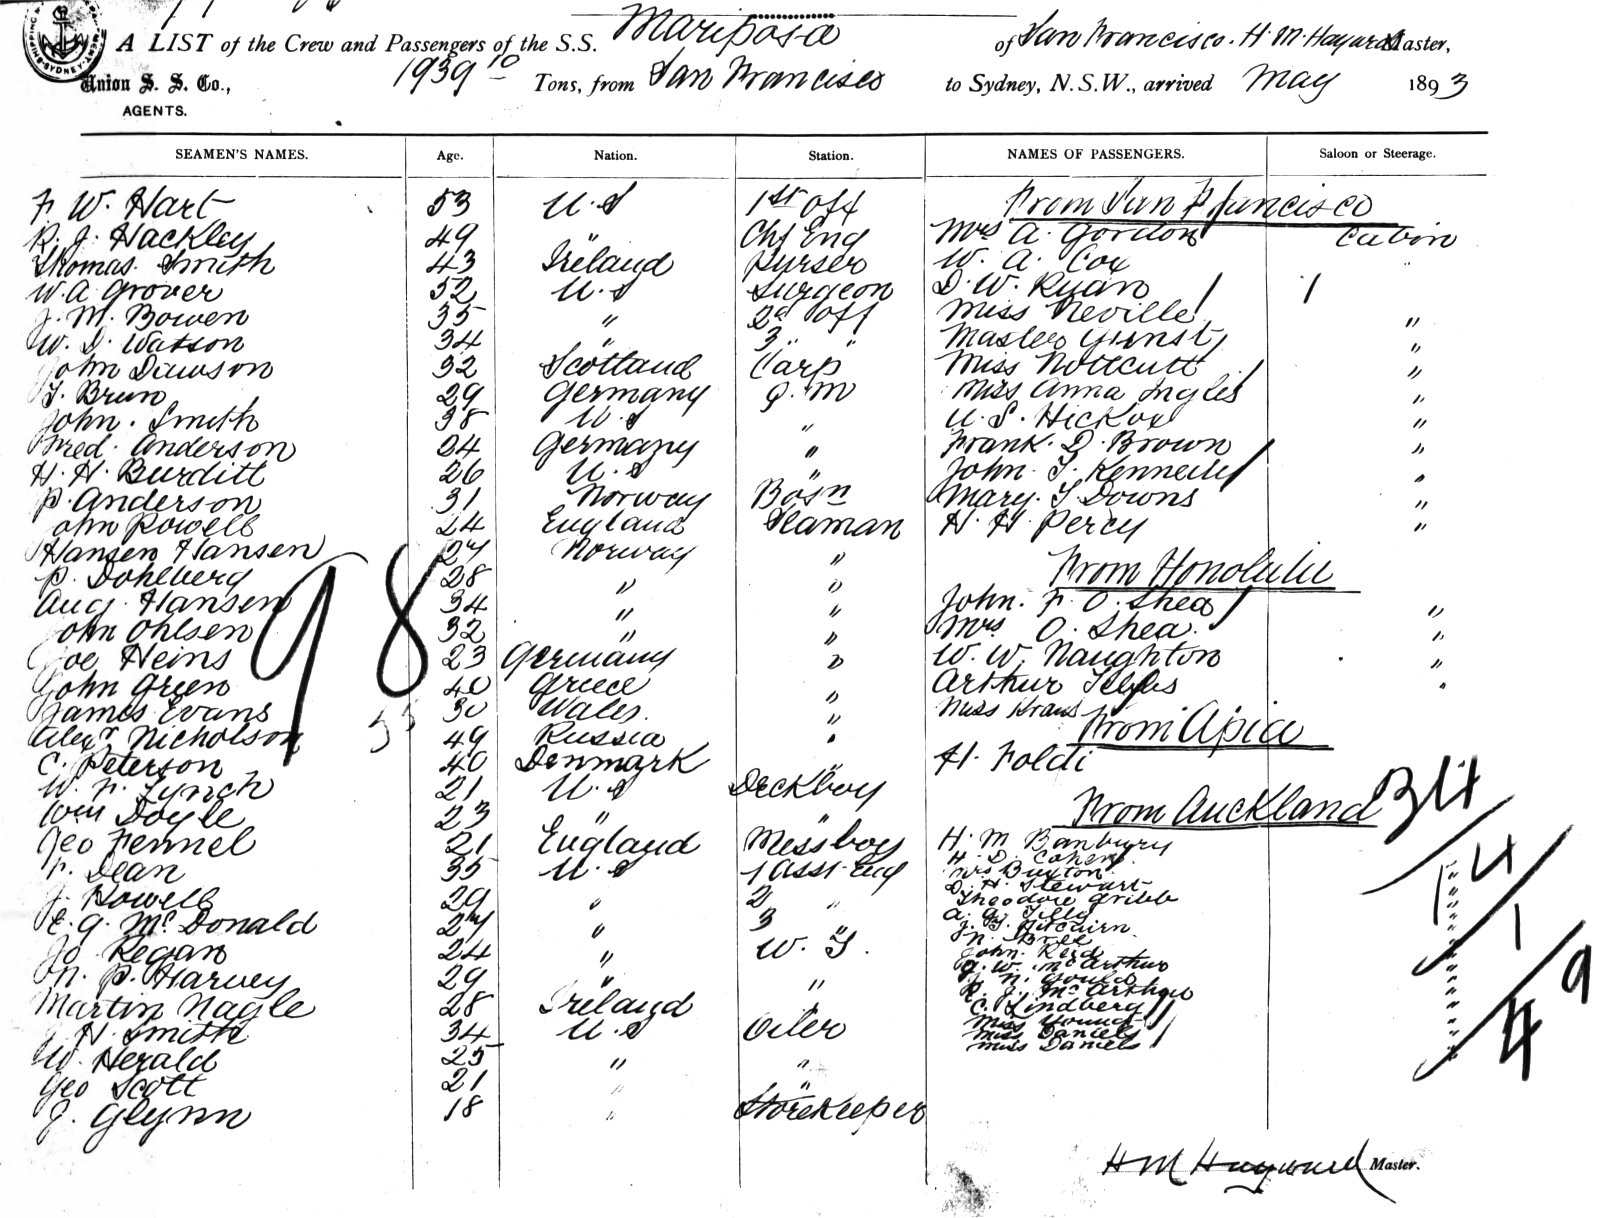 A LIST of the Crew and Passengers of the S.S. Mariposa of San Francisco. H. M. Hayward Master,
Union S. S. Co., 1939 10 Tons, from San Francisco to Sydney, N.S.W., arrived May 1893
AGENTS.
SEAMEN'S NAMES. Age. Nation. Station. NAMES OF PASSENGERS. Saloon or Steerage.
F. W. Hart 53 U.S 1st Off From San Francisco
R. J. Hackley 49 " Chf Eng Mrs A. Gordon Cabin
Thomas Smith 43 Ireland Purser W. A. Cox "
W. A Grover 52 U.S Surgeon D. W. Ryan 1
J. M. Bowen 35 " 2d Off Miss Neville "
W. D. Watson 34 " 3 " Master Gunst "
John Dawson 32 Scotland Carp Miss Nottcutt "
T. Brun 29 Germany Q. M Miss Anna Ingles "
John Smith 38 U.S " U. S. Hickox "
Fred. Anderson 24 Germany " Frank. D. Brown "
H. H. Burditt 26 U.S " John. T. Kennedy "
P. Anderson 31 Norway Bosn Mary. T. Downs "
John Powell 24 England Seaman H. H. Percy "
Hansen Hansen 27 Norway "
P. Dohlberg 28 " " From Honolulu
Aug. Hansen 34 " " John. F. O. Shea "
John Ohlsen 32 " " Mrs O. Shea "
Joe Heins 23 Germany " W. W. Naughton "
John Green 40 Greece " Arthur "
James Evans 30 Wales. " Miss Kraus
Alexr Nicholson 49 Russia " From Apia
C. Peterson 40 Denmark " H. Foldi
W. F. Lynch 21 U.S Deckboy
Wm Doyle 23 " " From Auckland 314
Geo Fennel 21 England Messboy H. M Banbury
F. Dean 35 U.S 1 Asst Eng H. D. Cohen
Mrs Buxton
J. Howell 29 " 2 " D. H. Stewart
Theodore Gribb
E. G. McDonald 27 " 3 A. G. Tilly
J. G. Pitcairn
Jo Regan 24 " W. T. N. Bree
John. Reid
N. P. Harvey 29 " " J. W. McArthur
J. N. Gould
Martin Nagle 28 Ireland " R. J. McArthur
C. Lindberg
J. H. Smith 34 U.S Oiler Miss Young
Miss Daniels
W. Herald 25 " " Miss Daniels
Geo Scott 21 " "
J. Glynn 18 " Storekeeper
98
14
1
9
4
H M Hayward Master.